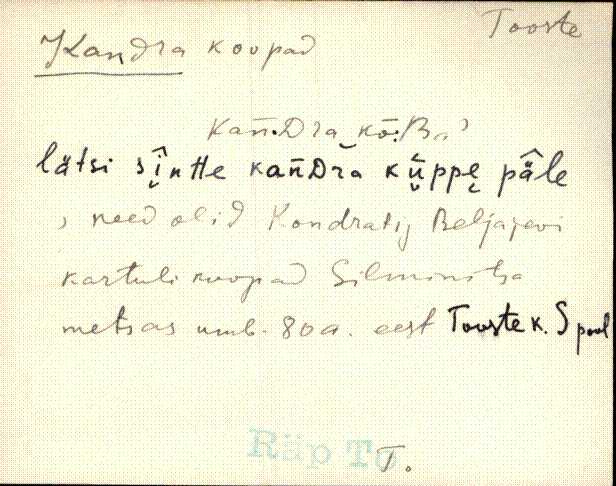 Tooste
Kandra koopad
kan̄·Dra kō͔·Ba'
lätsi sî̮nttе kan̄Dră kü̮ppe̮ pâle
, need olid Kondratij Beljajevi
kartuli koopad Silminitsa
metsas umb. 80 a. eest Tooste k. S pool
Räp To
T.